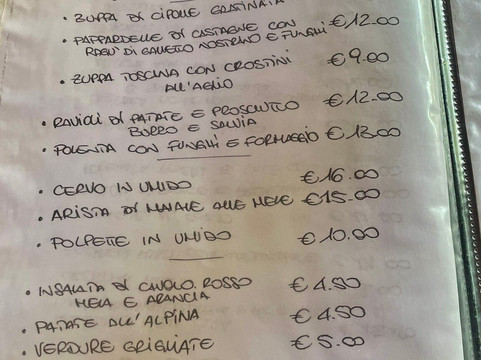 • ZUPPA DI CIPOLLE GRATINATA
• PAPPARDELLE DI CASTAGNE CON €12.00
RAGU' DI GALLETTO NOSTRANO E FUNGHI
• ZUPPA TOSCANA CON CROSTINI €9.00
ALL'AGLIO
• RAVIOLI DI PATATE E PROSCIUTTO €12.00
BURRO E SALVIA
• POLENTA CON FUNGHI E FORMAGGIO €13.00
• CERVO IN UMIDO €16.00
• ARISTA DI MAIALE ALLE MELE €15.00
• POLPETTE IN UMIDO €10.00
• INSALATA DI CAVOLO ROSSO €4.50
MELA E ARANCIA
• PATATE ALL'ALPINA €4.50
• VERDURE GRIGLIATE €5.00